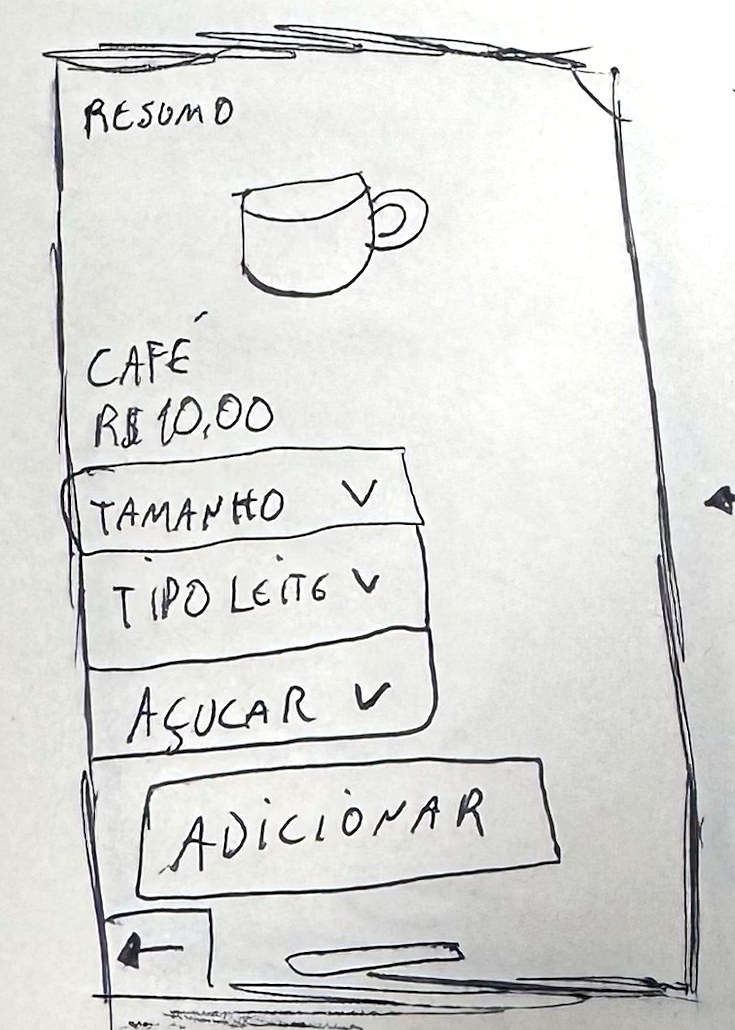 RESUMO
CAFÉ
R$ 10,00
TAMANHO
TIPO LEITE
AÇUCAR
ADICIONAR